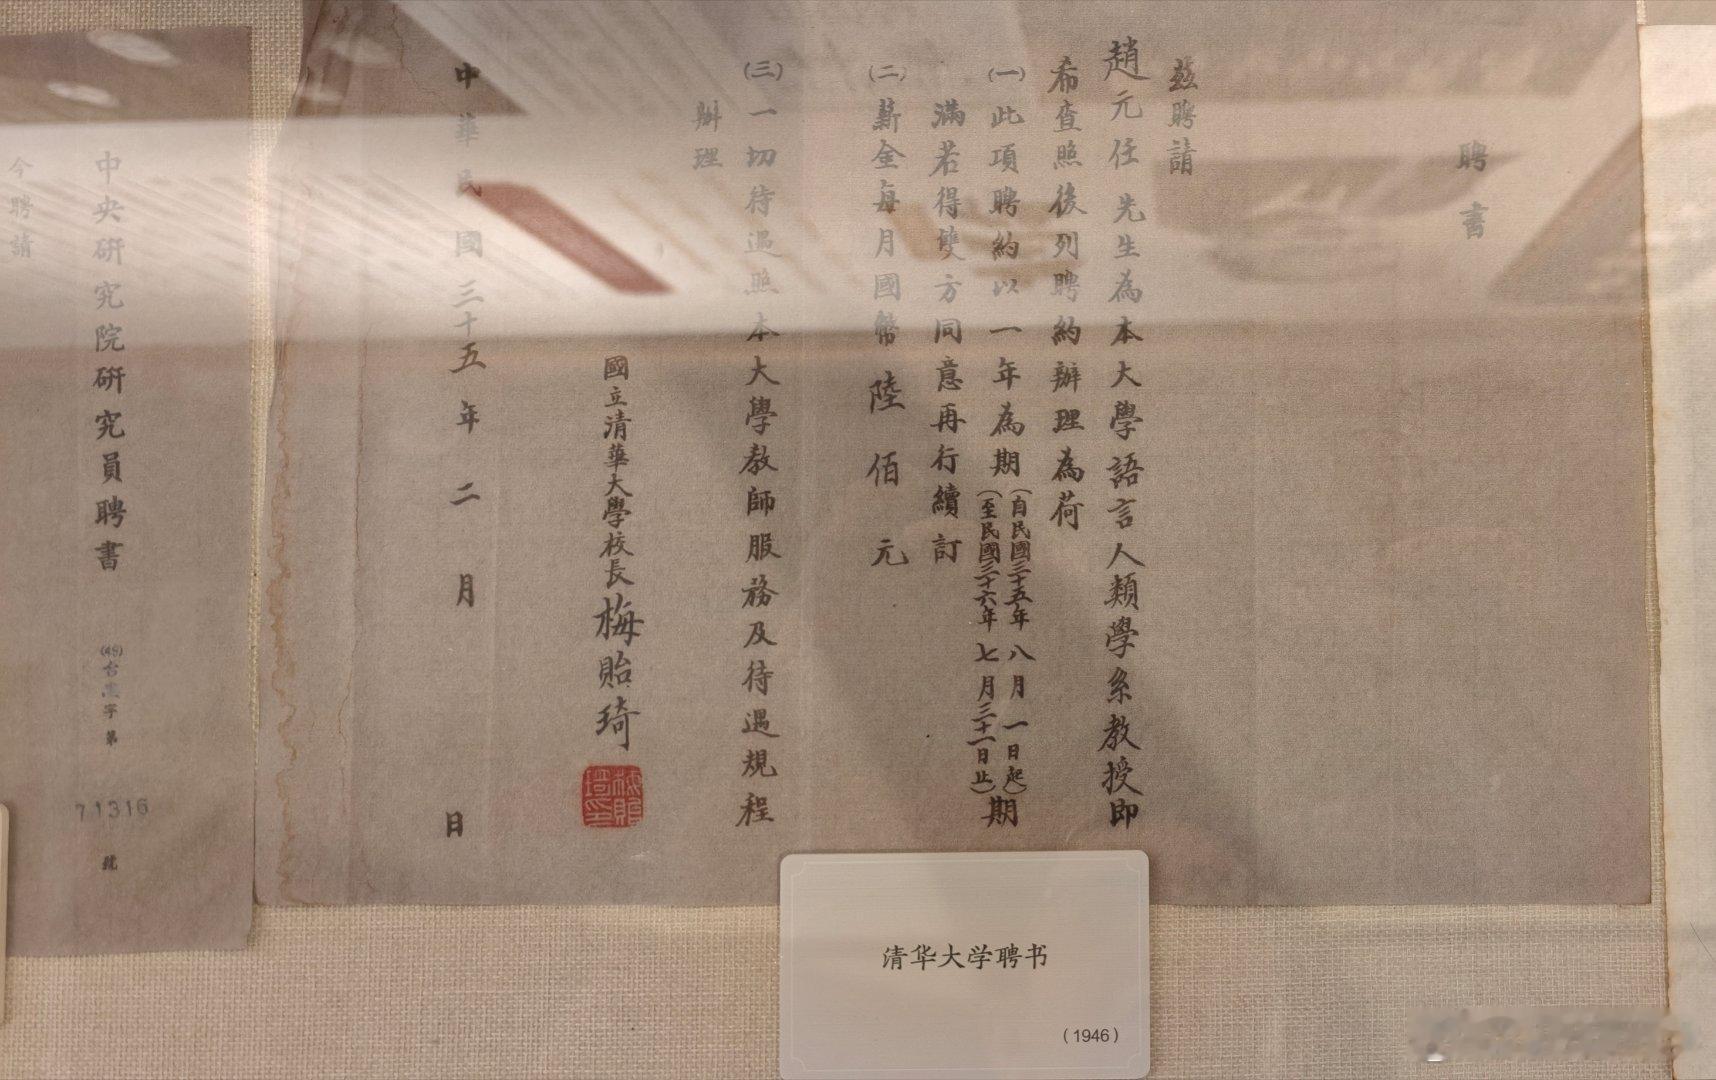 聘書
茲聘請
趙元任先生為本大學語言人類學系教授即
希查照後列聘約辦理為荷
(一)此項聘約以一年為期(自民國三十五年八月一日起)(至民國三十六年七月三十一日止)期
滿若得雙方同意再行續訂
(二)薪金每月國幣陸佰元
(三)一切待遇照本大學教師服務及待遇規程
辦理
國立清華大學校長梅貽琦
中華民國三十五年二月日
中央研究院研究員聘書
(49)台
字第
71316
號
今聘請
清华大学聘书
(1946)